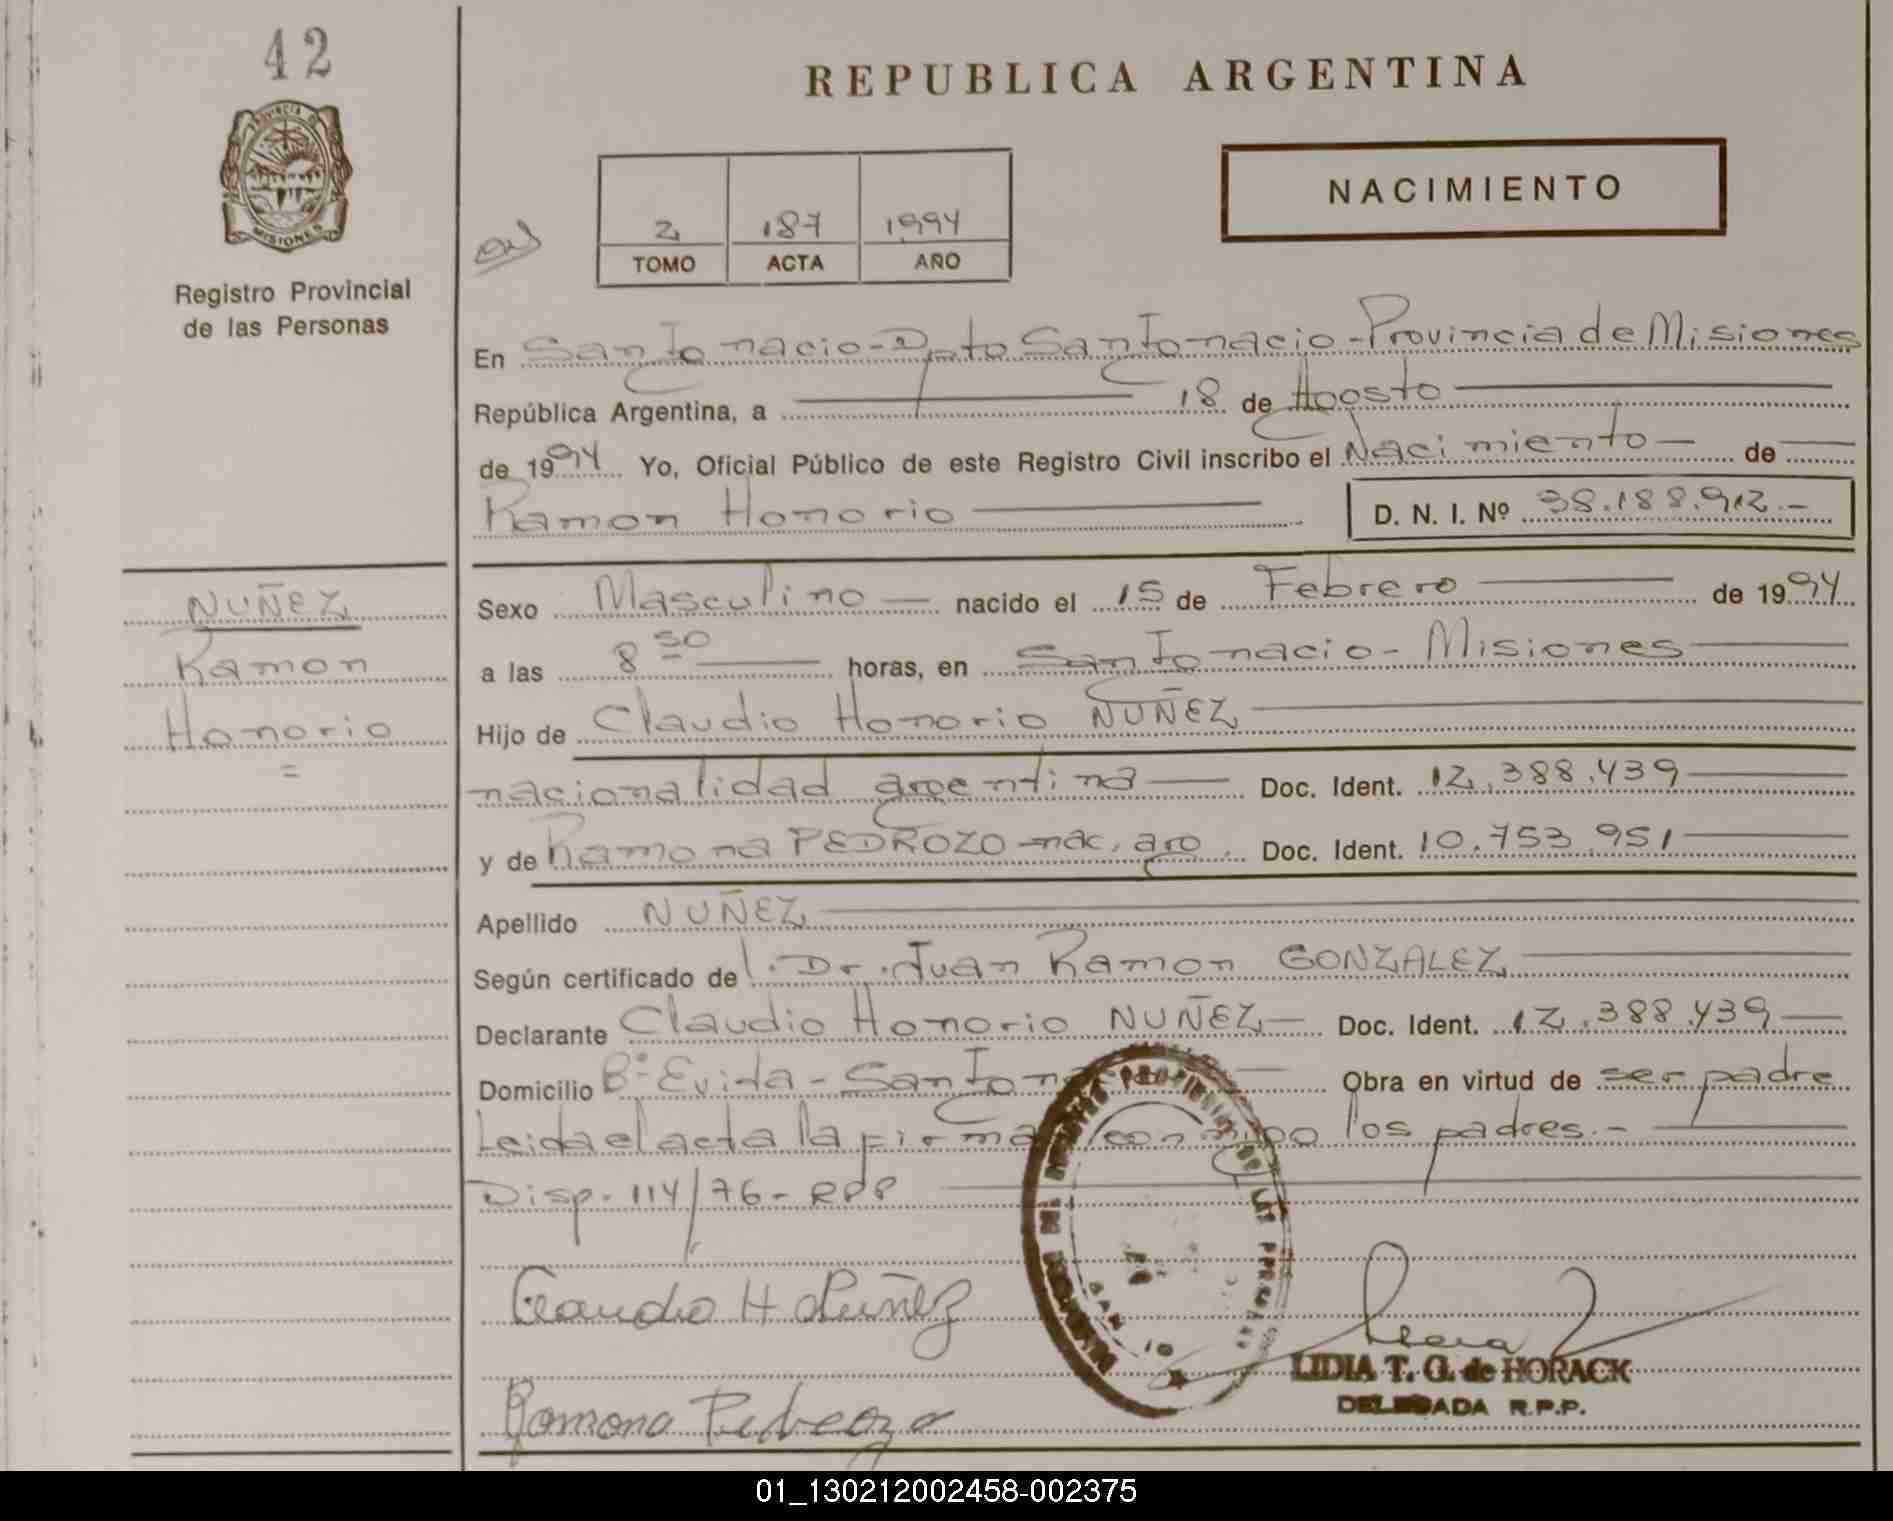 42
REPUBLICA ARGENTINA
PROVINCIA DE
MISIONES
NACIMIENTO
2 187 1994
TOMO ACTA AÑO
Registro Provincial
de las Personas
En San Ignacio - Dpto San Ignacio - Provincia de Misiones
República Argentina, a 18 de Agosto
de 1994 Yo, Oficial Público de este Registro Civil inscribo el Nacimiento de
Ramon Honorio D. N. I. Nº 38.188.912.-
NUÑEZ
Ramon
Honorio
=
Sexo Masculino nacido el 15 de Febrero de 1994
a las 8 50 horas, en San Ignacio - Misiones
Hijo de Claudio Honorio NUÑEZ
nacionalidad argentina Doc. Ident. 12.388.439
y de Ramona PEDROZO nac. arg. Doc. Ident. 10.753.951
Apellido NUÑEZ
Según certificado de l. Dr. Juan Ramon GONZALEZ
Declarante Claudio Honorio NUÑEZ Doc. Ident. 12.388.439
Domicilio Bº Evita - San Ignacio Obra en virtud de ser padre
Leida el acta la firman conmigo los padres.-
Disp. 114/76 - RPP
Claudio H Nuñez
Ramona Pedrozo
LIDIA T. G. de HORACK
DELEGADA R.P.P.
01_130212002458-002375